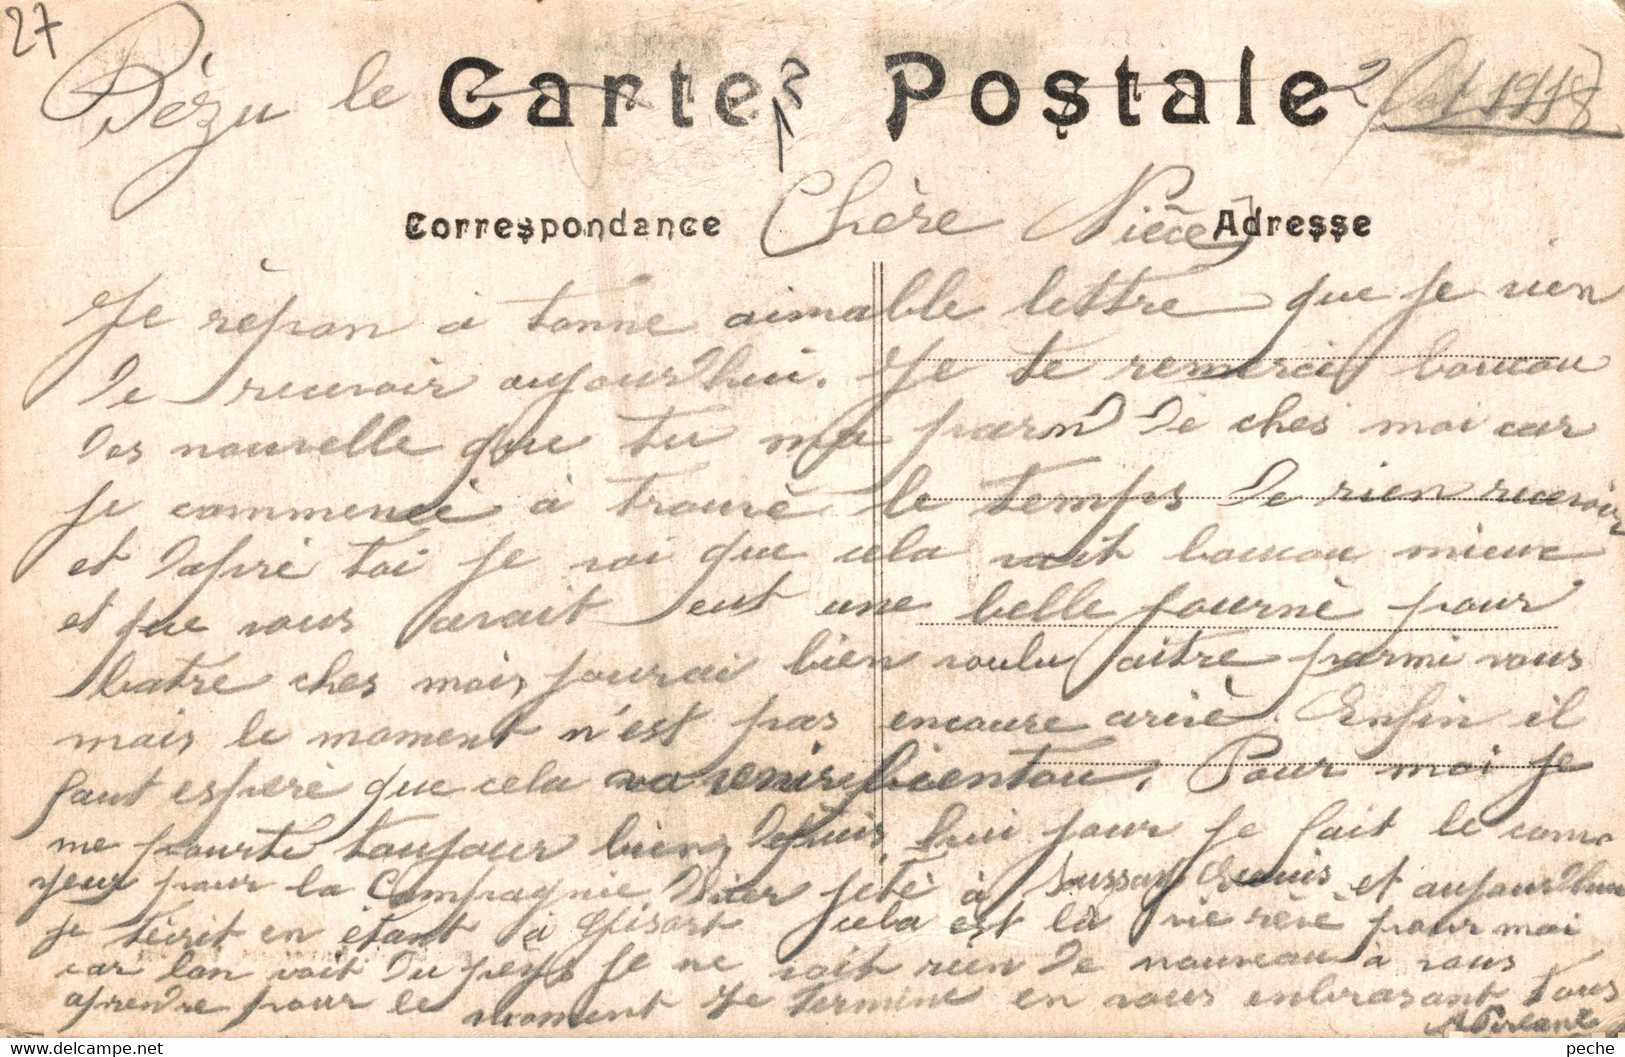 27
Bézu le
Carte Postale
2 Oct 1918
Correspondance
Chère Nièce
Adresse
Je rèpon a tonne aimable lettre que je vien
de recevoir aujourd'hui. Je te remerci boucou
des nouvelle que tu ma parn de ches moi car
je commencè à trouvè le temps de rien recevoir
et dapré toi je voi que cela vait boucou mieux
et que vous avait eut une belle journè pour
batre ches moi, jourai bien voulu aitre parmi vous
mais le moment n'est pas encoure arivè. Enfin il
faut esperè que cela va venir bientou. Pour moi je
me pourte toujour bien, depuis hui jour je fait le convo
yeur pour la Compagnie hier jetè à et aujourd'hui
je técrit en étant à Gisort cela est la vie rèvè pour moi
car lon voit du peys je ne voit rien de nouveau a vous
aprendre pour le moment Je termine en vous enbrasant tous
peche